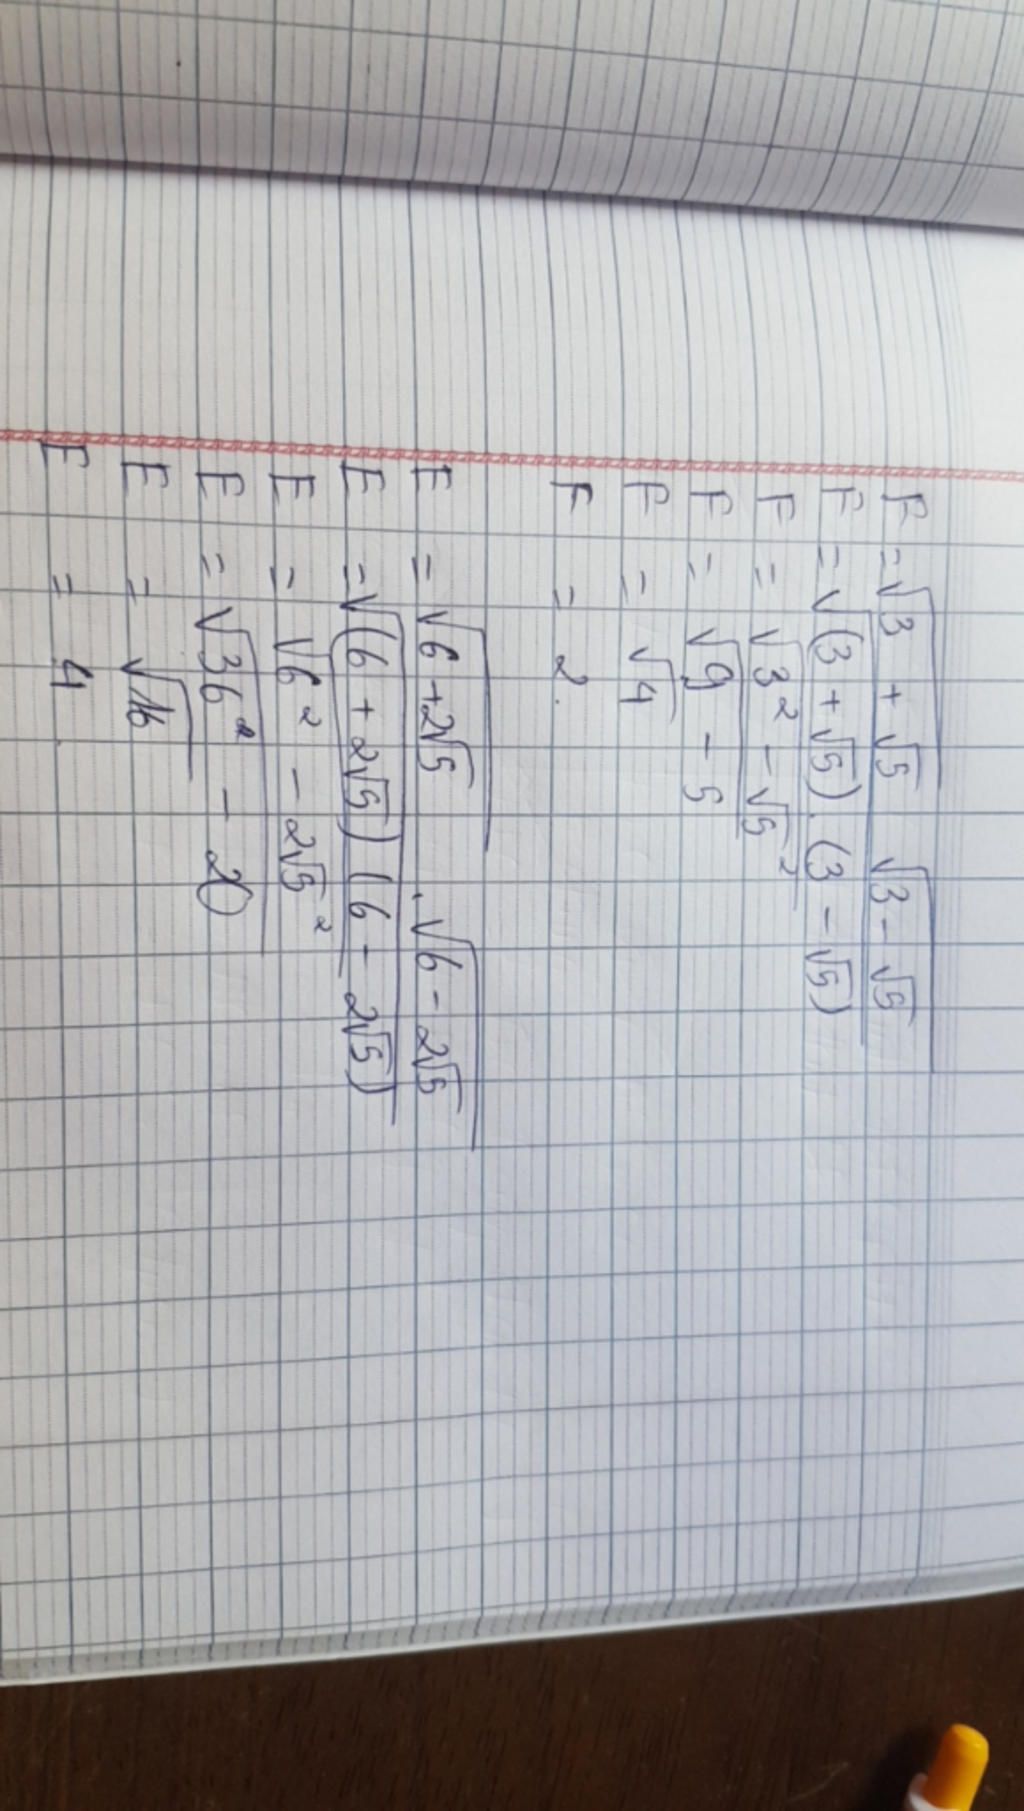 F = √(3 + √5) √(3 - √5)
F = √((3 + √5).(3 - √5))
F = √(3² - √5²)
F = √(9 - 5)
F = √4
F = 2.
E = √(6 + 2√5) . √(6 - 2√5)
E = √((6 + 2√5)(6 - 2√5))
E = √(6² - 2√5²)
E = √(36² - 20)
E = √16
E = 4.